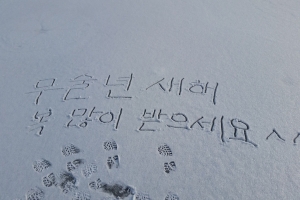 무술년 새해
복 많이 받으세요 ^^